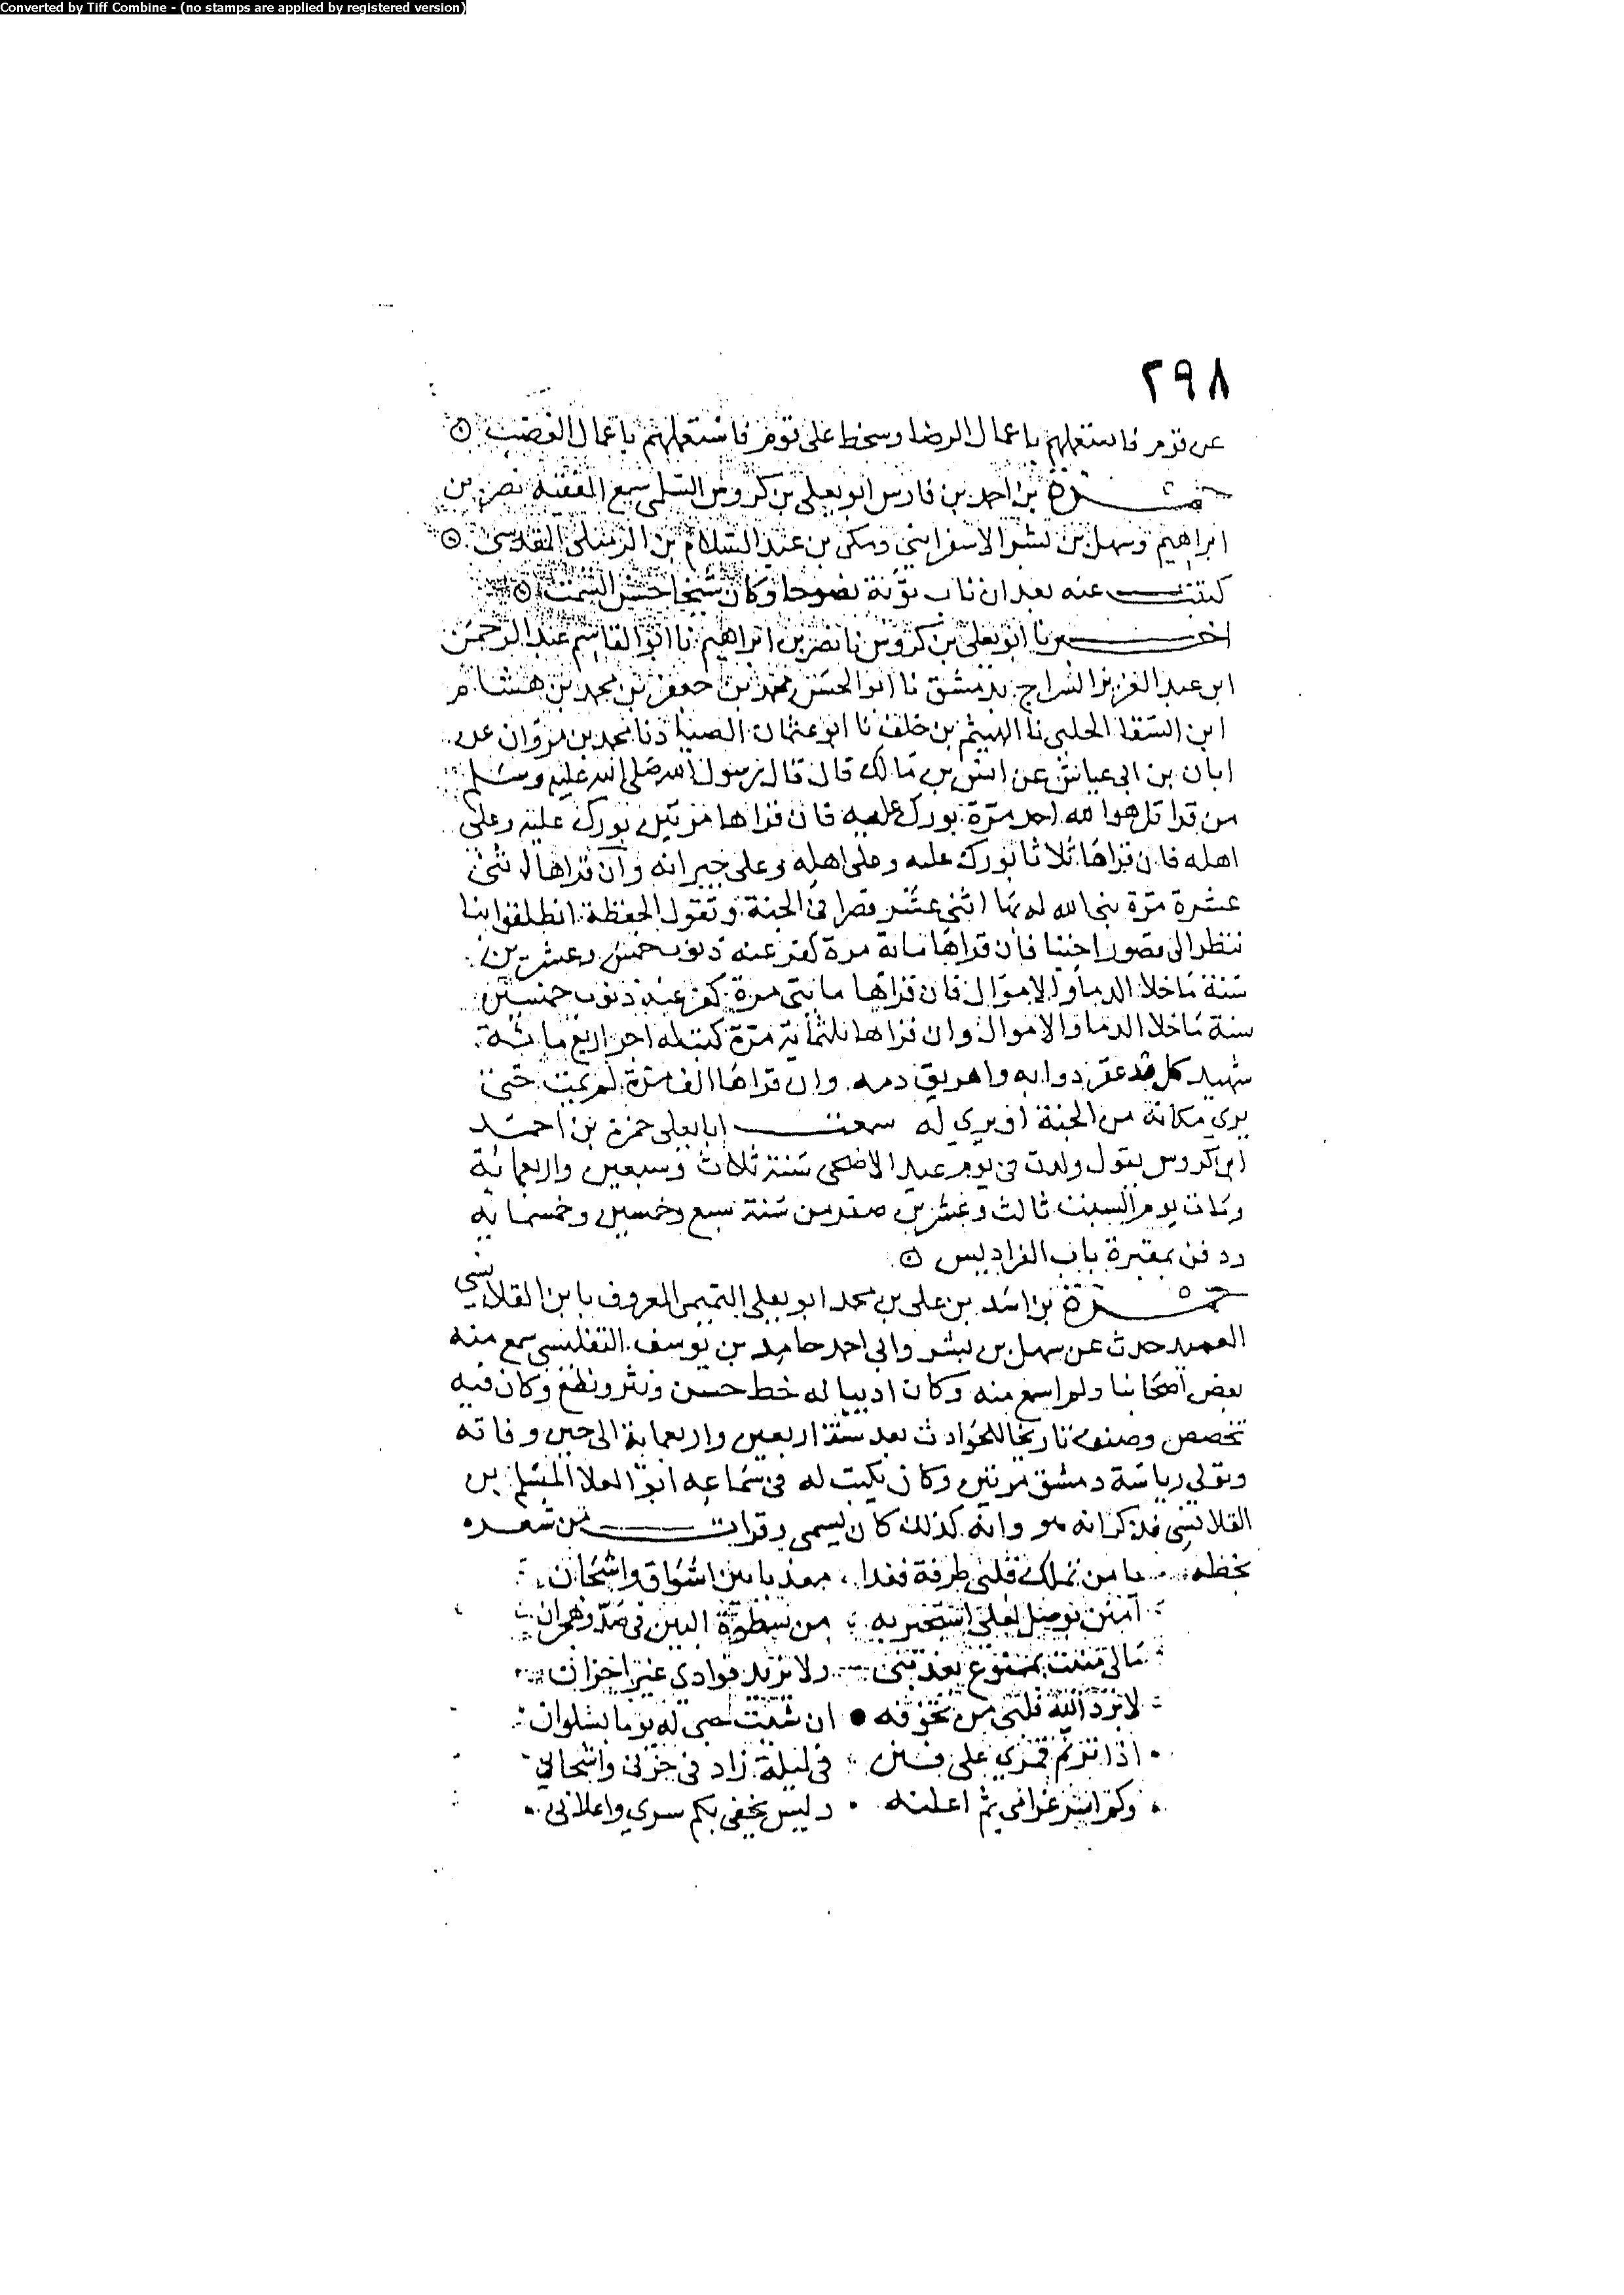 Converted by Tiff Combine - (no stamps are applied by registered version)
٢٩٨
عن قوم فاستعملهم باعمال الرضا وسخط على قوم فاستعملهم باعمال الغضب
حمزة بن احمد بن فارس ابو يعلى بن كروس السلمي سمع الفقيه نصر بن
ابراهيم وسهل بن بشر الاسفرايني ومكي بن عبد السلام بن الرميلي المقدسي
كتبت عنه بعد ان تاب توبة نصوحا وكان شيخا حسن السمت
اخبرنا ابو يعلى بن كروس نا نصر بن ابراهيم نا ابو القاسم عبد الرحمن
ابن عبد العزيز السراج بدمشق نا ابو الحسن محمد بن جعفر بن محمد بن هشام
ابن السقا الحلبي نا الهيثم بن خلف نا ابو عثمان الصياد نا محمد بن مروان عن
ابان بن ابي عياش عن انس بن مالك قال قال رسول الله صلى الله عليه وسلم
من قرا قل هو الله احد مرة بورك عليه فان قراها مرتين بورك عليه وعلى
اهله فان قراها ثلاثا بورك عليه وعلى اهله وعلى جيرانه وان قراها اثنى
عشرة مرة بنى الله له بها اثني عشر قصرا في الجنة وتقول الحفظة انطلقوا بنا
ننظر الى قصور اخينا فان قراها مائة مرة كفر عنه ذنوب خمس وعشرين
سنة ما خلا الدما والاموال فان قراها مايتي مرة كفر عنه ذنوب خمسين
سنة ما خلا الدما والاموال وان قراها ثلثماية مرة كتب له اجر اربع مائة
شهيد كل قد عقر دوابه واهريق دمه وان قراها الف مرة لم يمت حتى
يرى مكانه من الجنة او يرى له سمعت ابا يعلى حمزة بن احمد
ابن كروس يقول ولدت في يوم عيد الاضحى سنة ثلاث وسبعين واربعمائة
ومات يوم السبت ثالث وعشرين صفر من سنة سبع وخمسين وخمسماية
ودفن بمقبرة باب الفراديس
حمزة بن اسد بن علي بن محمد ابو يعلى التميمي المعروف بابن القلانسي
العميد حدث عن سهل بن بشر وابي احمد حامد بن يوسف التفليسي سمع منه
بعض اصحابنا ولم اسمع منه وكان اديبا له خط حسن ونثر ونظم وكان فيه
تخصص وصنف تاريخا للحوادث بعد سنة اربعين واربعماية الى حين وفاته
وتولى رياسة دمشق مرتين وكان يكتب له في سماعه ابو العلا المسلم بن
القلانسي فذكر انه هو وانه كذلك كان يسمى وقرات من شعره
بخطه يا من تملك قلبي طرفة فغدا معذبا بين اشواق واشجان
امنن بوصل لعلي استجير به من سطوة البين في صد وهجران
مالي منيت بممنوع يعذبني ولا يزيد فوادي غير احزان
لا برد الله قلبي من تحرقه ان شبت حبي له يوما بسلوان
اذا ترنم قمري على فنن في ليلة زاد في حزني واشجاني
وكم اسر غرامي ثم اعلنه وليس يخفى بكم سري واعلاني